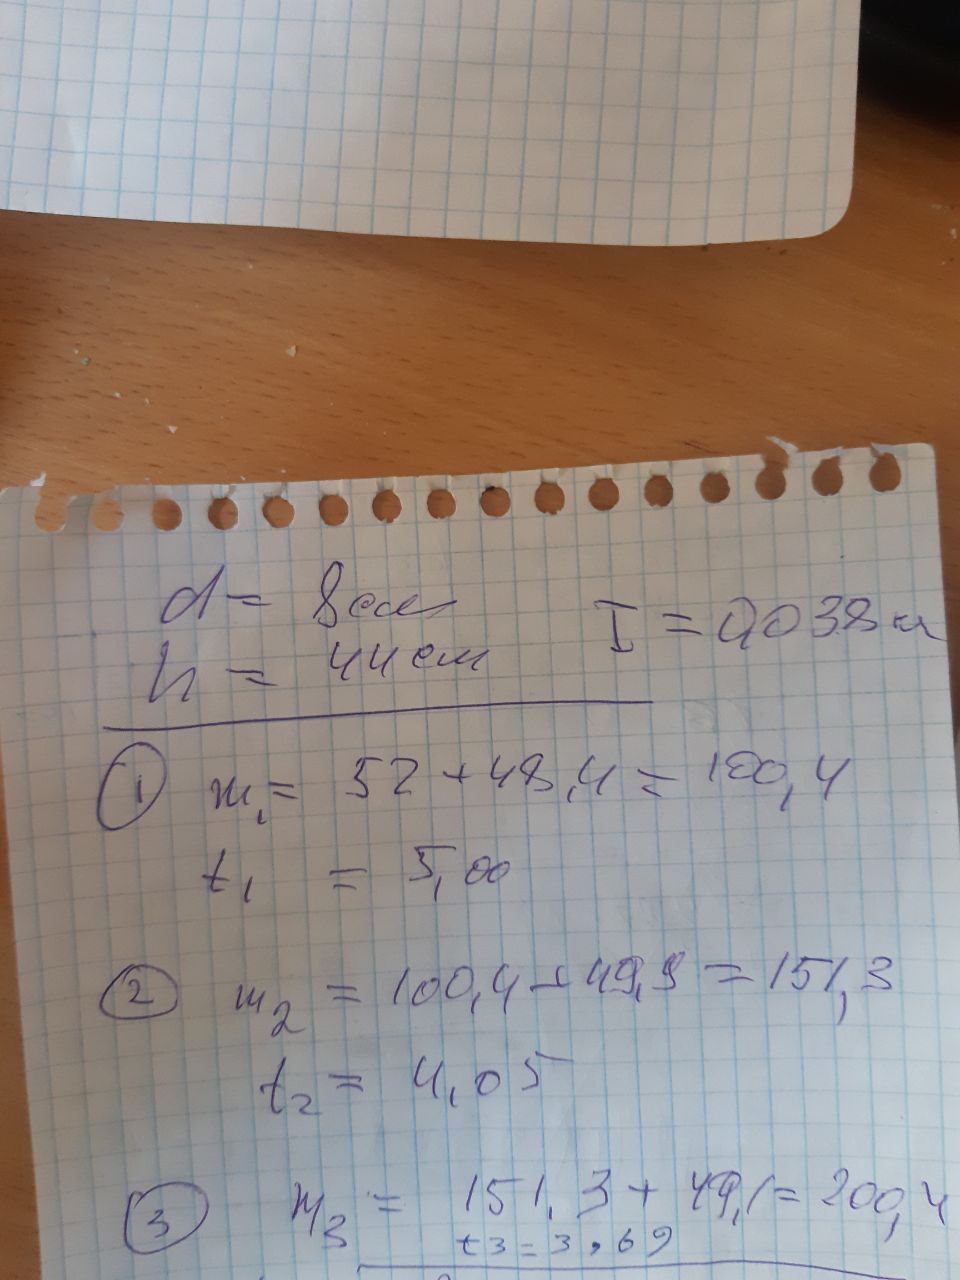 d = 8см
h = 44см I = 0,038 кг
① m₁ = 52 + 48,4 = 100,4
t₁ = 5,00
② m₂ = 100,4 + 49,9 = 151,3
t₂ = 4,05
③ m₃ = 151,3 + 49,1 = 200,4
t3 = 3.69